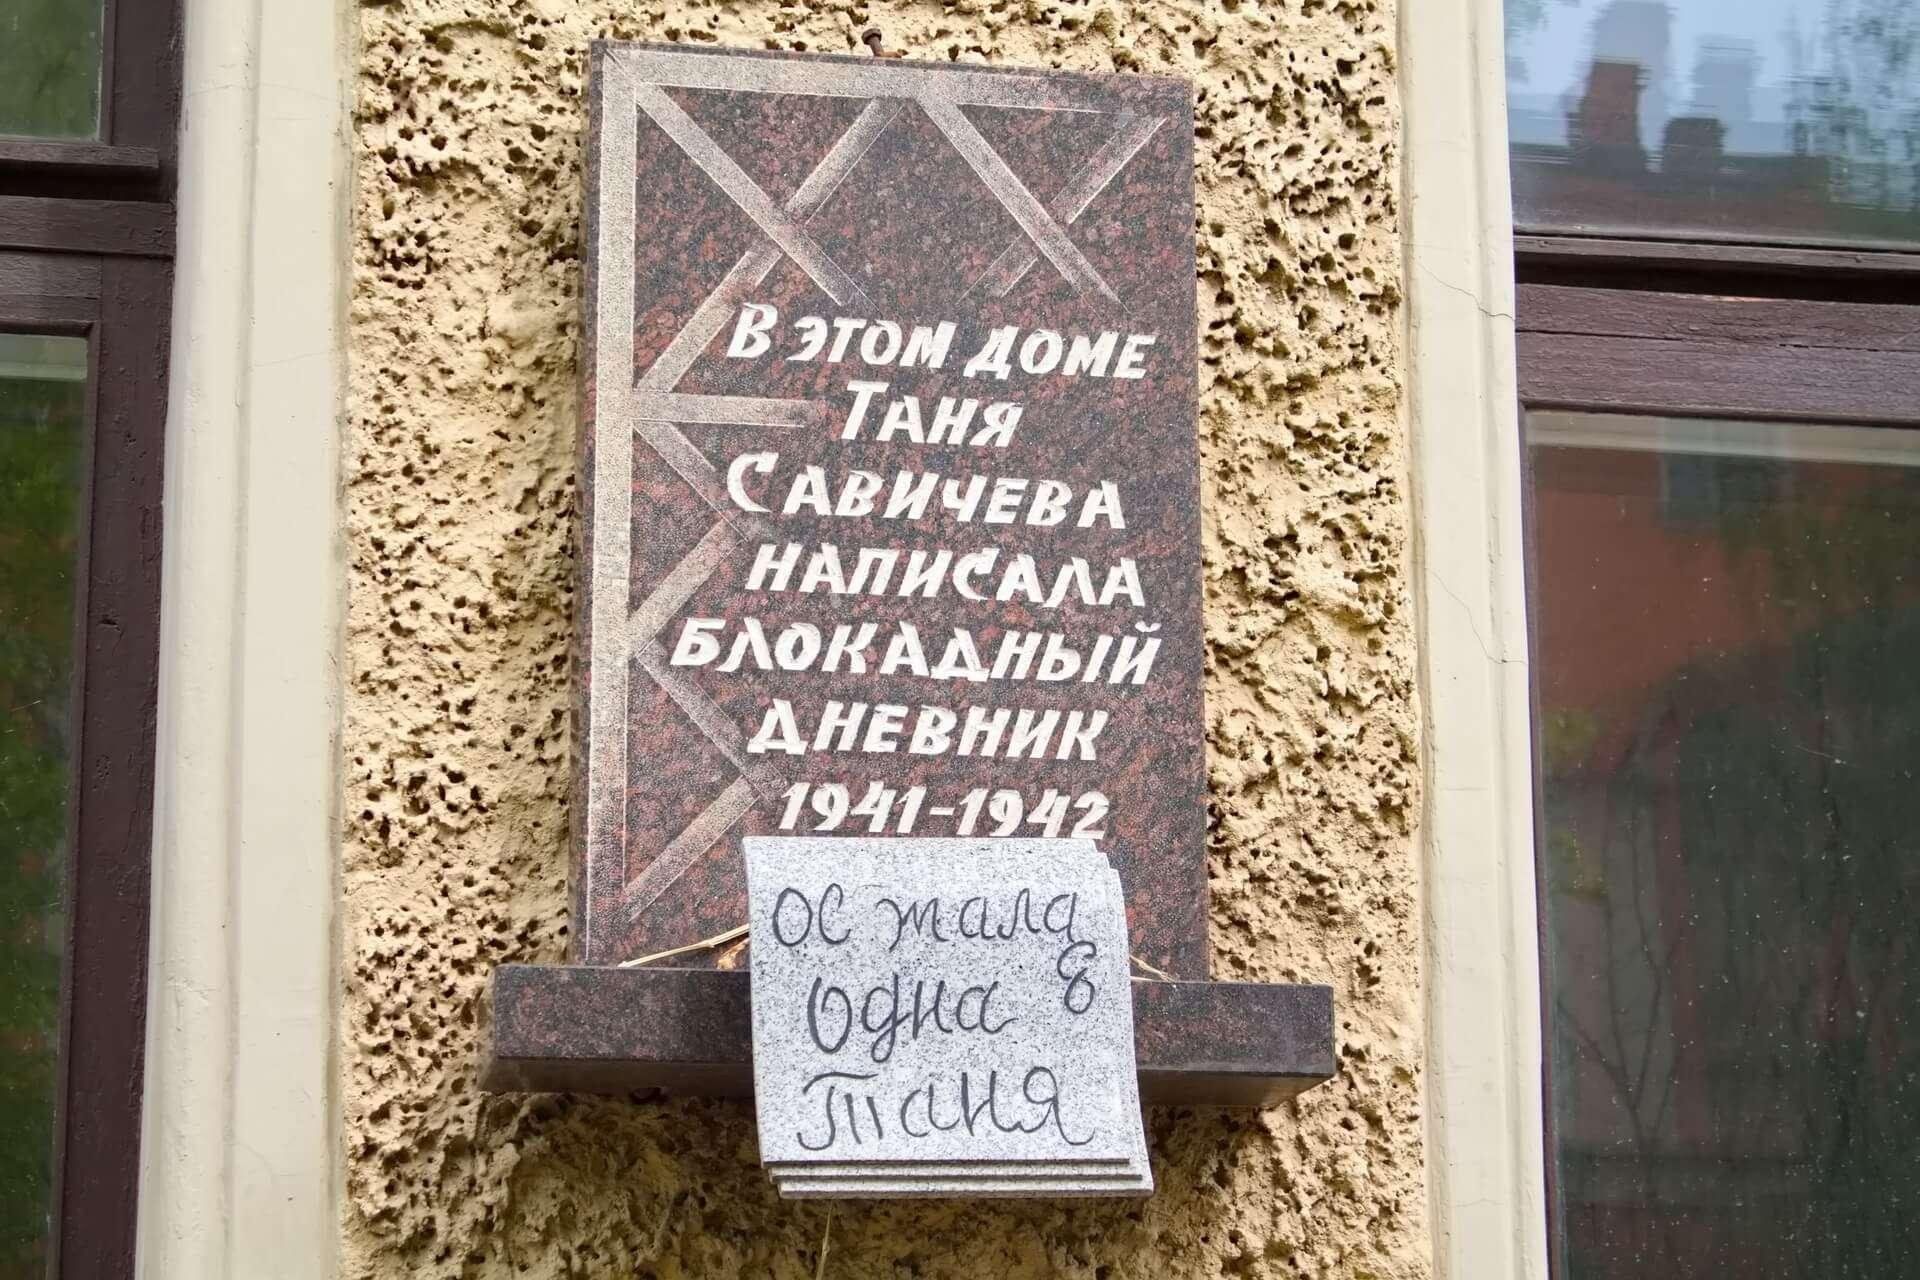 В ЭТОМ ДОМЕ
ТАНЯ
САВИЧЕВА
НАПИСАЛА
БЛОКАДНЫЙ
ДНЕВНИК
1941-1942
ос тала
одна
Таня